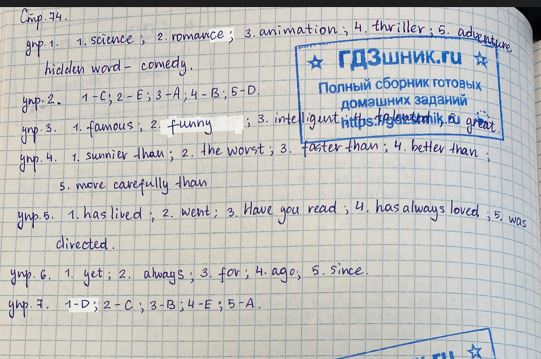 Стр. 74.
упр. 1. 1. science ; 2. romance ; 3. animation ; 4. thriller ; 5. adventure
hidden word – comedy.
ГДЗшник.ru
Полный сборник готовых
домашних заданий
упр. 2. 1-C ; 2-E ; 3-A ; 4-B ; 5-D.
упр. 3. 1. famous ; 2. funny ; 3. intelligent ; 4. talented ; 5. great
упр. 4. 1. sunnier than ; 2. the worst ; 3. faster than ; 4. better than ;
5. more carefully than
упр. 5. 1. has lived ; 2. went ; 3. Have you read ; 4. has always loved ; 5. was
directed.
упр. 6. 1. yet ; 2. always ; 3. for ; 4. ago ; 5. since.
упр. 7. 1-D ; 2-C ; 3-B ; 4-E ; 5-A.